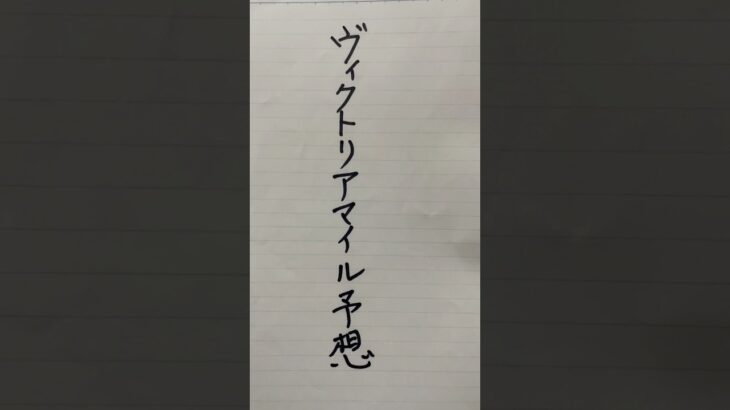 ヴィクトリアマイル予想